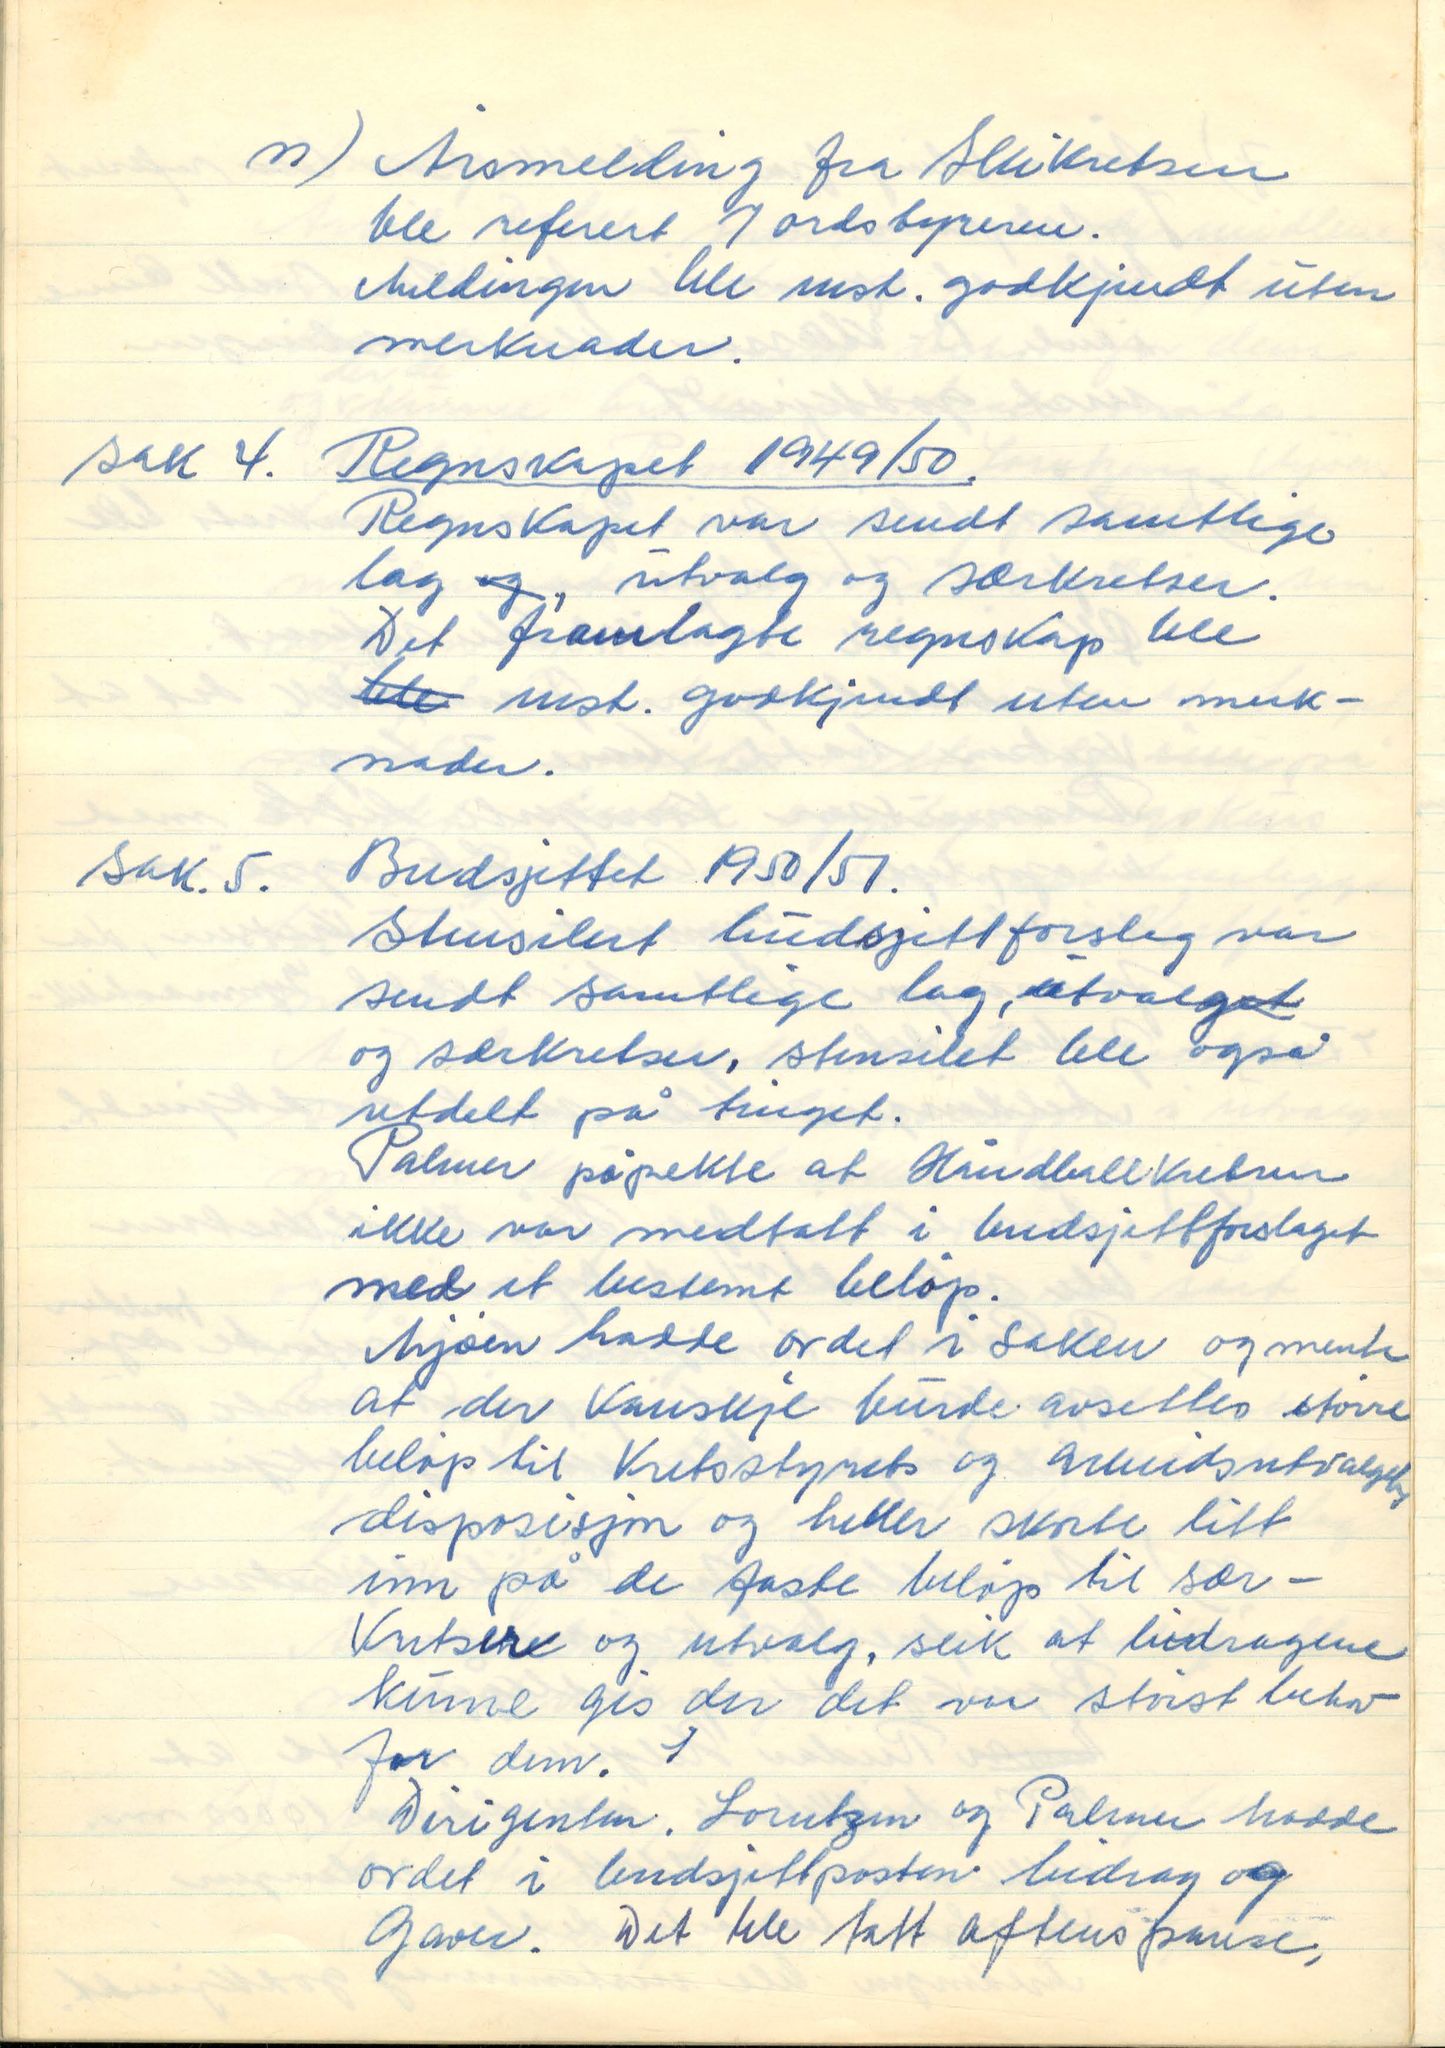 n) Årsmelding fra Skikretsen
ble referert / ordstyreren.
Meldingen ble enst. godkjendt uten
merknader.
Sak 4. Regnskapet 1949/50.
Regnskapet var sendt samtlige
lag og, utvalg og særkretser.
Det framlagte regnskap ble
ble enst. godkjendt uten merk-
nader.
Sak. 5. Budsjettet 1950/51.
Stensilert budsjettforslag var
sendt samtlige lag, utvalget
og særkretser, stensilet ble også
utdelt på tinget.
Palmer påpekte at Håndballkretsen
ikke var medtatt i budsjettforslaget
med et bestemt beløp.
Mjøen hadde ordet i saken og mente
at der kanskje burde avsettes större
beløp til Kretsstyrets og Arbeidsutvalgets
disposisjon og heller skorte litt
inn på de faste beløp til sær-
kretsene og utvalg, slik at bidragene
kunne gis der det var störst behov
for dem.
Dirigenten. Lorentzen og Palmer hadde
ordet i budsjettposten bidrag og
Gaver. Det ble tatt aftenspause,